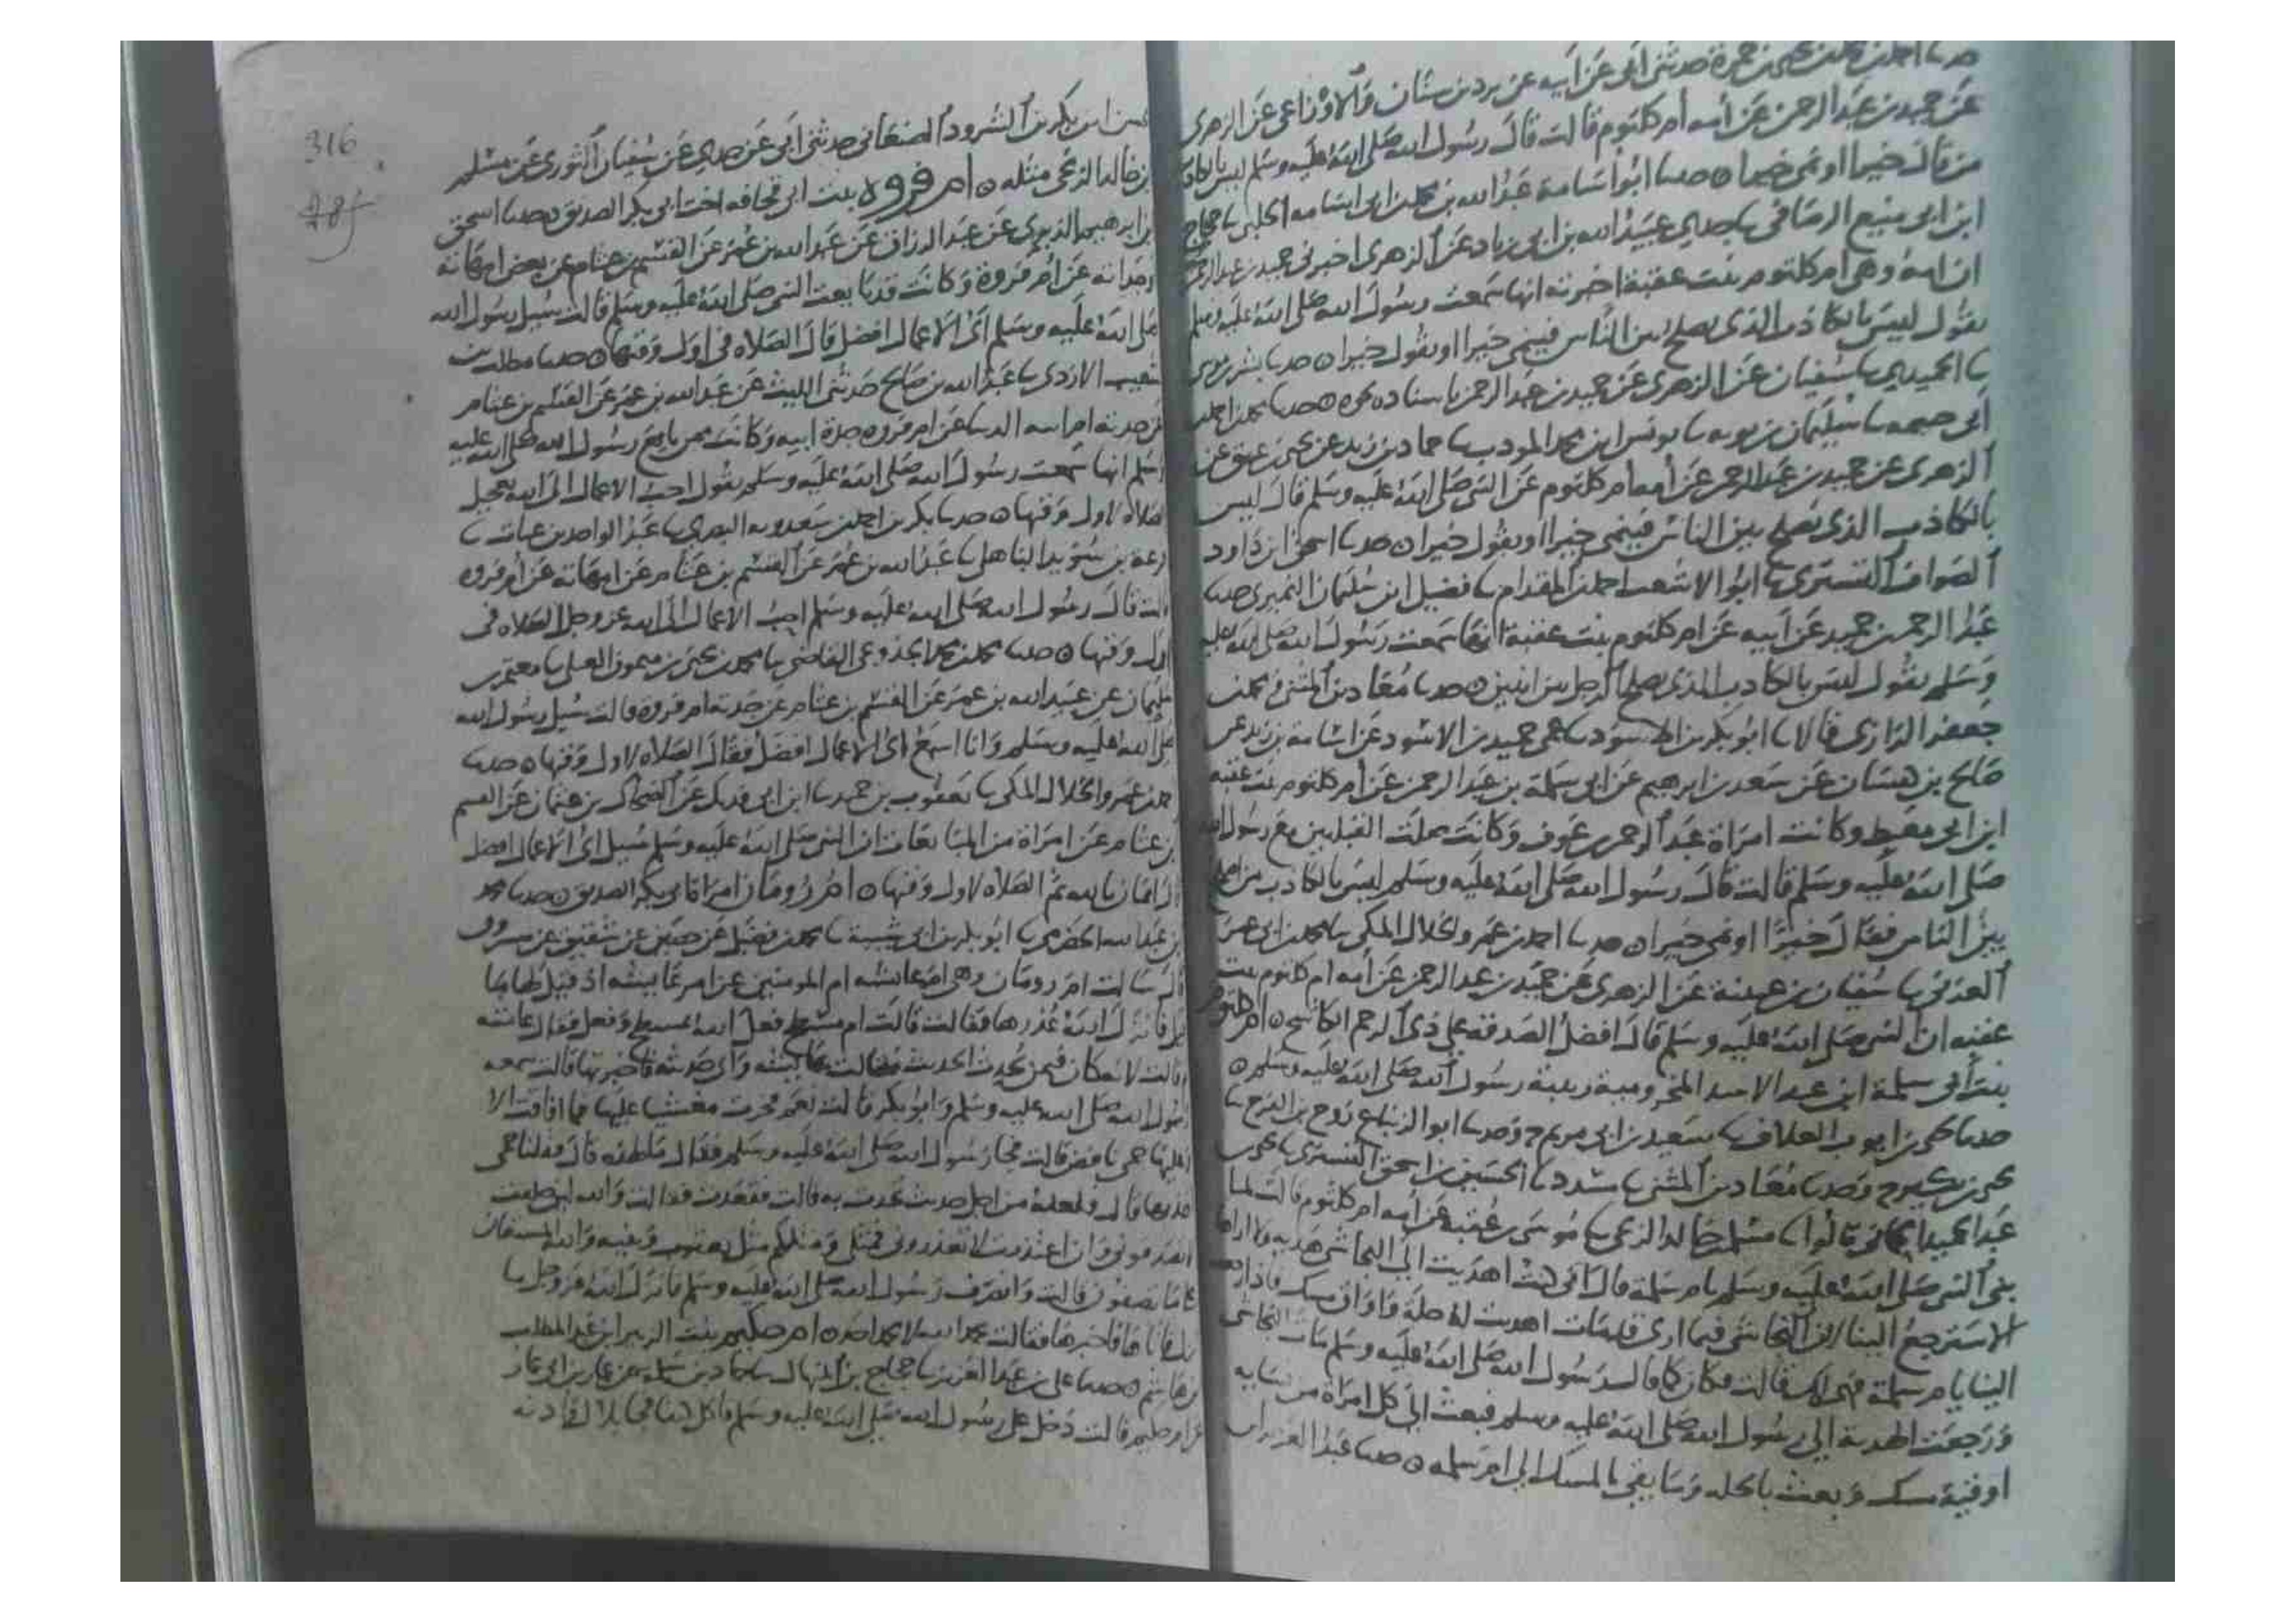 حدثنا احمد بن محمد بن يحيى بن حمزة حدثني ابي عن ابيه عن برد بن سنان والاوزاعي عن الزهري
عن حميد بن عبد الرحمن عن امه ام كلثوم قالت قال رسول الله صلى الله عليه وسلم ليس بالكاذب
من قال خيرا او نمى خيرا ٥ حدثنا ابو اسامة عبد الله بن محمد بن ابي اسامه الحلبي نا حجاج
ابن ابي منيع الرصافي نا جدي عبيد الله بن ابي زياد عن الزهري اخبرني حميد بن عبد الرحمن
ان امه وهي ام كلثوم بنت عقبة اخبرته انها سمعت رسول الله صلى الله عليه وسلم
يقول ليس بالكاذب الذي يصلح بين الناس فينمي خيرا او يقول خيرا ٥ حدثنا بشر بن موسى
نا الحميدي نا سفيان عن الزهري عن حميد بن عبد الرحمن باسناده نحوه ٥ حدثنا محمد بن احمد بن
ابي خيثمه نا سليمان بن نا يونس ابن محمد المودب نا حماد بن زيد عن يحيى بن عتيق عن
الزهري عن حميد بن عبد الرحمن عن امه ام كلثوم عن النبي صلى الله عليه وسلم قال ليس
بالكاذب الذي يصلح بين الناس فينمي خيرا او يقول خيرا ٥ حدثنا اسحق ابن داود
الصواف التستري نا ابو الاشعث احمد بن المقدام نا فضيل ابن سليمان النميري حدثنا
عبد الرحمن بن حميد عن ابيه عن ام كلثوم بنت عقبة انها سمعت رسول الله صلى الله عليه
وسلم يقول ليس بالكاذب الذي يصلح الرجل بين اثنين ٥ حدثنا معاذ بن المثنى ومحمد بن
جعفر الرازي قالا نا ابو بكر بن الاسود نا عمي حميد بن الاسود عن اسامة بن زيد عن
صالح بن كيسان عن سعد بن ابرهيم عن ابي سلمة بن عبد الرحمن عن ام كلثوم بنت عقبه
ابن ابي معيط وكانت امراة عبد الرحمن بن عوف وكانت صلت القبلتين مع رسول الله
صلى الله عليه وسلم قالت قال رسول الله صلى الله عليه وسلم ليس بالكاذب من اصلح
بين الناس فقال خيرا او نمى خيرا ٥ حدثنا احمد بن عمرو الخلال المكي نا محمد بن ابي عمر
العدني نا سفيان بن عيينة عن الزهري عن حميد بن عبد الرحمن عن امه ام كلثوم بنت
عقبه ان النبي صلى الله عليه وسلم قال افضل الصدقه على ذي الرحم الكاشح ٥ ام كلثوم
بنت ابي سلمة ابن عبد الاسد المخزومية ربيبة رسول الله صلى الله عليه وسلم ٥
حدثنا يحيى بن ايوب العلاف نا سعيد بن ابي مريم ح وحدثنا ابو الزنباع روح بن الفرج نا
يحيى بن بكير ح وحدثنا معاذ بن المثنى نا مسدد ح نا الحسين بن اسحق التستري نا يحيى بن
عبد الحميد الحماني قالوا نا مسلم بن خالد الزنجي نا موسى بن عقبة عن امه ام كلثوم قالت لما
بنى النبي صلى الله عليه وسلم بام سلمة قال اني قد اهديت الى النجاشي هدية ولا اراها
الا سترجع الينا ان النجاشي فيما ارى قد مات اهديت له حلة واواق مسك فاذا رجعت
الينا يا ام سلمة فهي لك قالت فكان كما قال رسول الله صلى الله عليه وسلم مات النجاشي
ورجعت الهدية الى رسول الله صلى الله عليه وسلم فبعث الى كل امراة من نسايه
اوقية مسك وبعث بالحله وما بقي بالمسك الى ام سلمه ٥ حدثنا عبد العزيز بن
316
الحسن ابن بكر بن الشرود الصنعاني حدثني ابي عن جدي عن سفيان الثوري عن مسلم
بن خالد الزنجي مثله ٥ ام فروه بنت ابي قحافه اخت ابي بكر الصديق ٥ حدثنا اسحق
بن ابرهيم الدبري عن عبد الرزاق عن عبد الله بن عمر عن القسم بن غنام عن بعض امهاته
وجداته عن ام فروة وكانت قد بايعت النبي صلى الله عليه وسلم قالت سيل رسول الله
صلى الله عليه وسلم اي الاعمال افضل قال الصلاه في اول وقتها ٥ حدثنا مطلب بن
شعيب الازدي نا عبد الله بن صالح حدثني الليث عن عبد الله بن عمر عن القسم بن غنام
عن جدته ام ابيه الدنيا عن ام فروه جدة ابيه وكانت ممن بايع رسول الله صلى الله عليه
وسلم انها سمعت رسول الله صلى الله عليه وسلم يقول احب الاعمال الى الله تعجيل
الصلاه لاول وقتها ٥ حدثنا بكر بن احمد بن سعدويه البصري نا عبد الواحد بن غياث نا
قزعة بن سويد الباهلي نا عبد الله بن عمر عن القسم بن غنام عن امهاته عن ام فروه
قالت قال رسول الله صلى الله عليه وسلم احب الاعمال الى الله عز وجل الصلاه في
اول وقتها ٥ حدثنا محمد بن محمد الجذوعي القاضي نا محمد بن يحيى بن ميمون العتكي نا معتمر بن
سليمان عن عبيد الله بن عمر عن القسم بن غنام عن جدته ام فروة قالت سيل رسول الله
صلى الله عليه وسلم وانا اسمع اي الاعمال افضل فقال الصلاه لاول وقتها ٥ حدثنا
احمد بن عمرو الخلال المكي نا يعقوب بن حميد نا ابن ابي فديك عن الضحاك بن عثمان عن القسم
بن غنام عن امراة من المبايعات ان النبي صلى الله عليه وسلم سيل اي الاعمال افضل
قال ايمان بالله ثم الصلاه لاول وقتها ٥ ام رومان امراة ابي بكر الصديق ٥ حدثنا محمد
بن عبد الله الحضرمي نا ابو بكر بن ابي شيبة نا محمد بن فضيل عن حصين عن شقيق عن مسروق
قال سالت ام رومان وهي ام عايشه ام المومنين عن امر عايشه اذ قيل لها ما
قيل فانزل الله عذرها فقالت قالت ام مسطح فعل الله بمسطح وفعل فقالت عايشه
قالت لانه كان فيمن يحدث الحديث فقالت عايشه واي حديث فاخبرتها قالت سمعه
رسول الله صلى الله عليه وسلم وابو بكر قالت نعم فخرت مغشيا عليها فما افاقت الا
عليها حمى نافض قالت فجا رسول الله صلى الله عليه وسلم فقال ما لهذه قال فقلنا حمى
اخذتها قال ولعله من اجل حديث تحدث به قالت فقعدت فقالت والله لين حلفت
لا تصدقوني وان اعتذرت لا تعذروني فمثلي ومثلكم مثل يعقوب وبنيه والله المستعان
على ما تصفون قالت وانصرف رسول الله صلى الله عليه وسلم فانزل الله عز وجل ما
انزل فاتاها فاخبرها فقالت بحمد الله لا بحمد احد ٥ ام حكيم بنت الزبير ابن عبد المطلب
بن هاشم ٥ حدثنا علي بن عبد العزيز نا حجاج بن المنهال نا حماد بن سلمة عن عمار بن ابي عمار
عن ام حكيم قالت دخل علي رسول الله صلى الله عليه وسلم فاكل